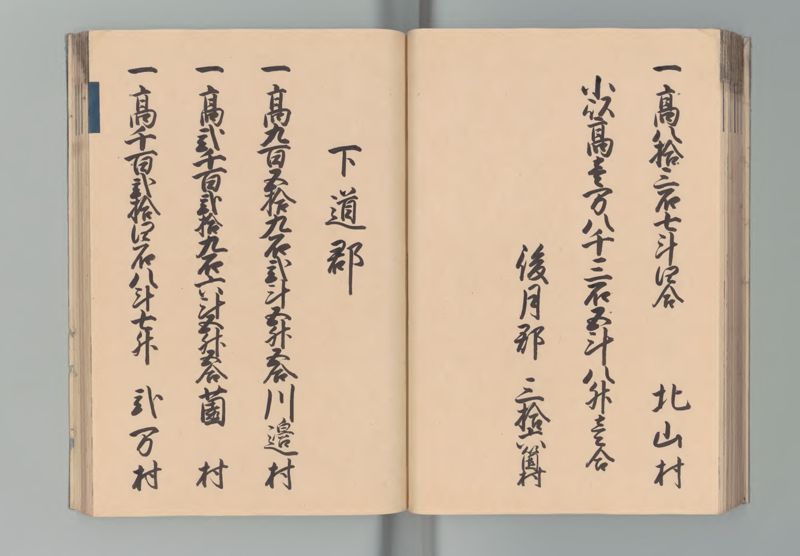 一高八拾三石七斗四合　北山村
小以高壱万八千三石五斗八升壱合
後月郡　三拾六箇村
下道郡
一高九百五拾九石弐斗五升五合　川邉村
一高弐千百弐拾九石六斗五升五合　薗村
一高千百弐拾四石八斗七升　弐万村